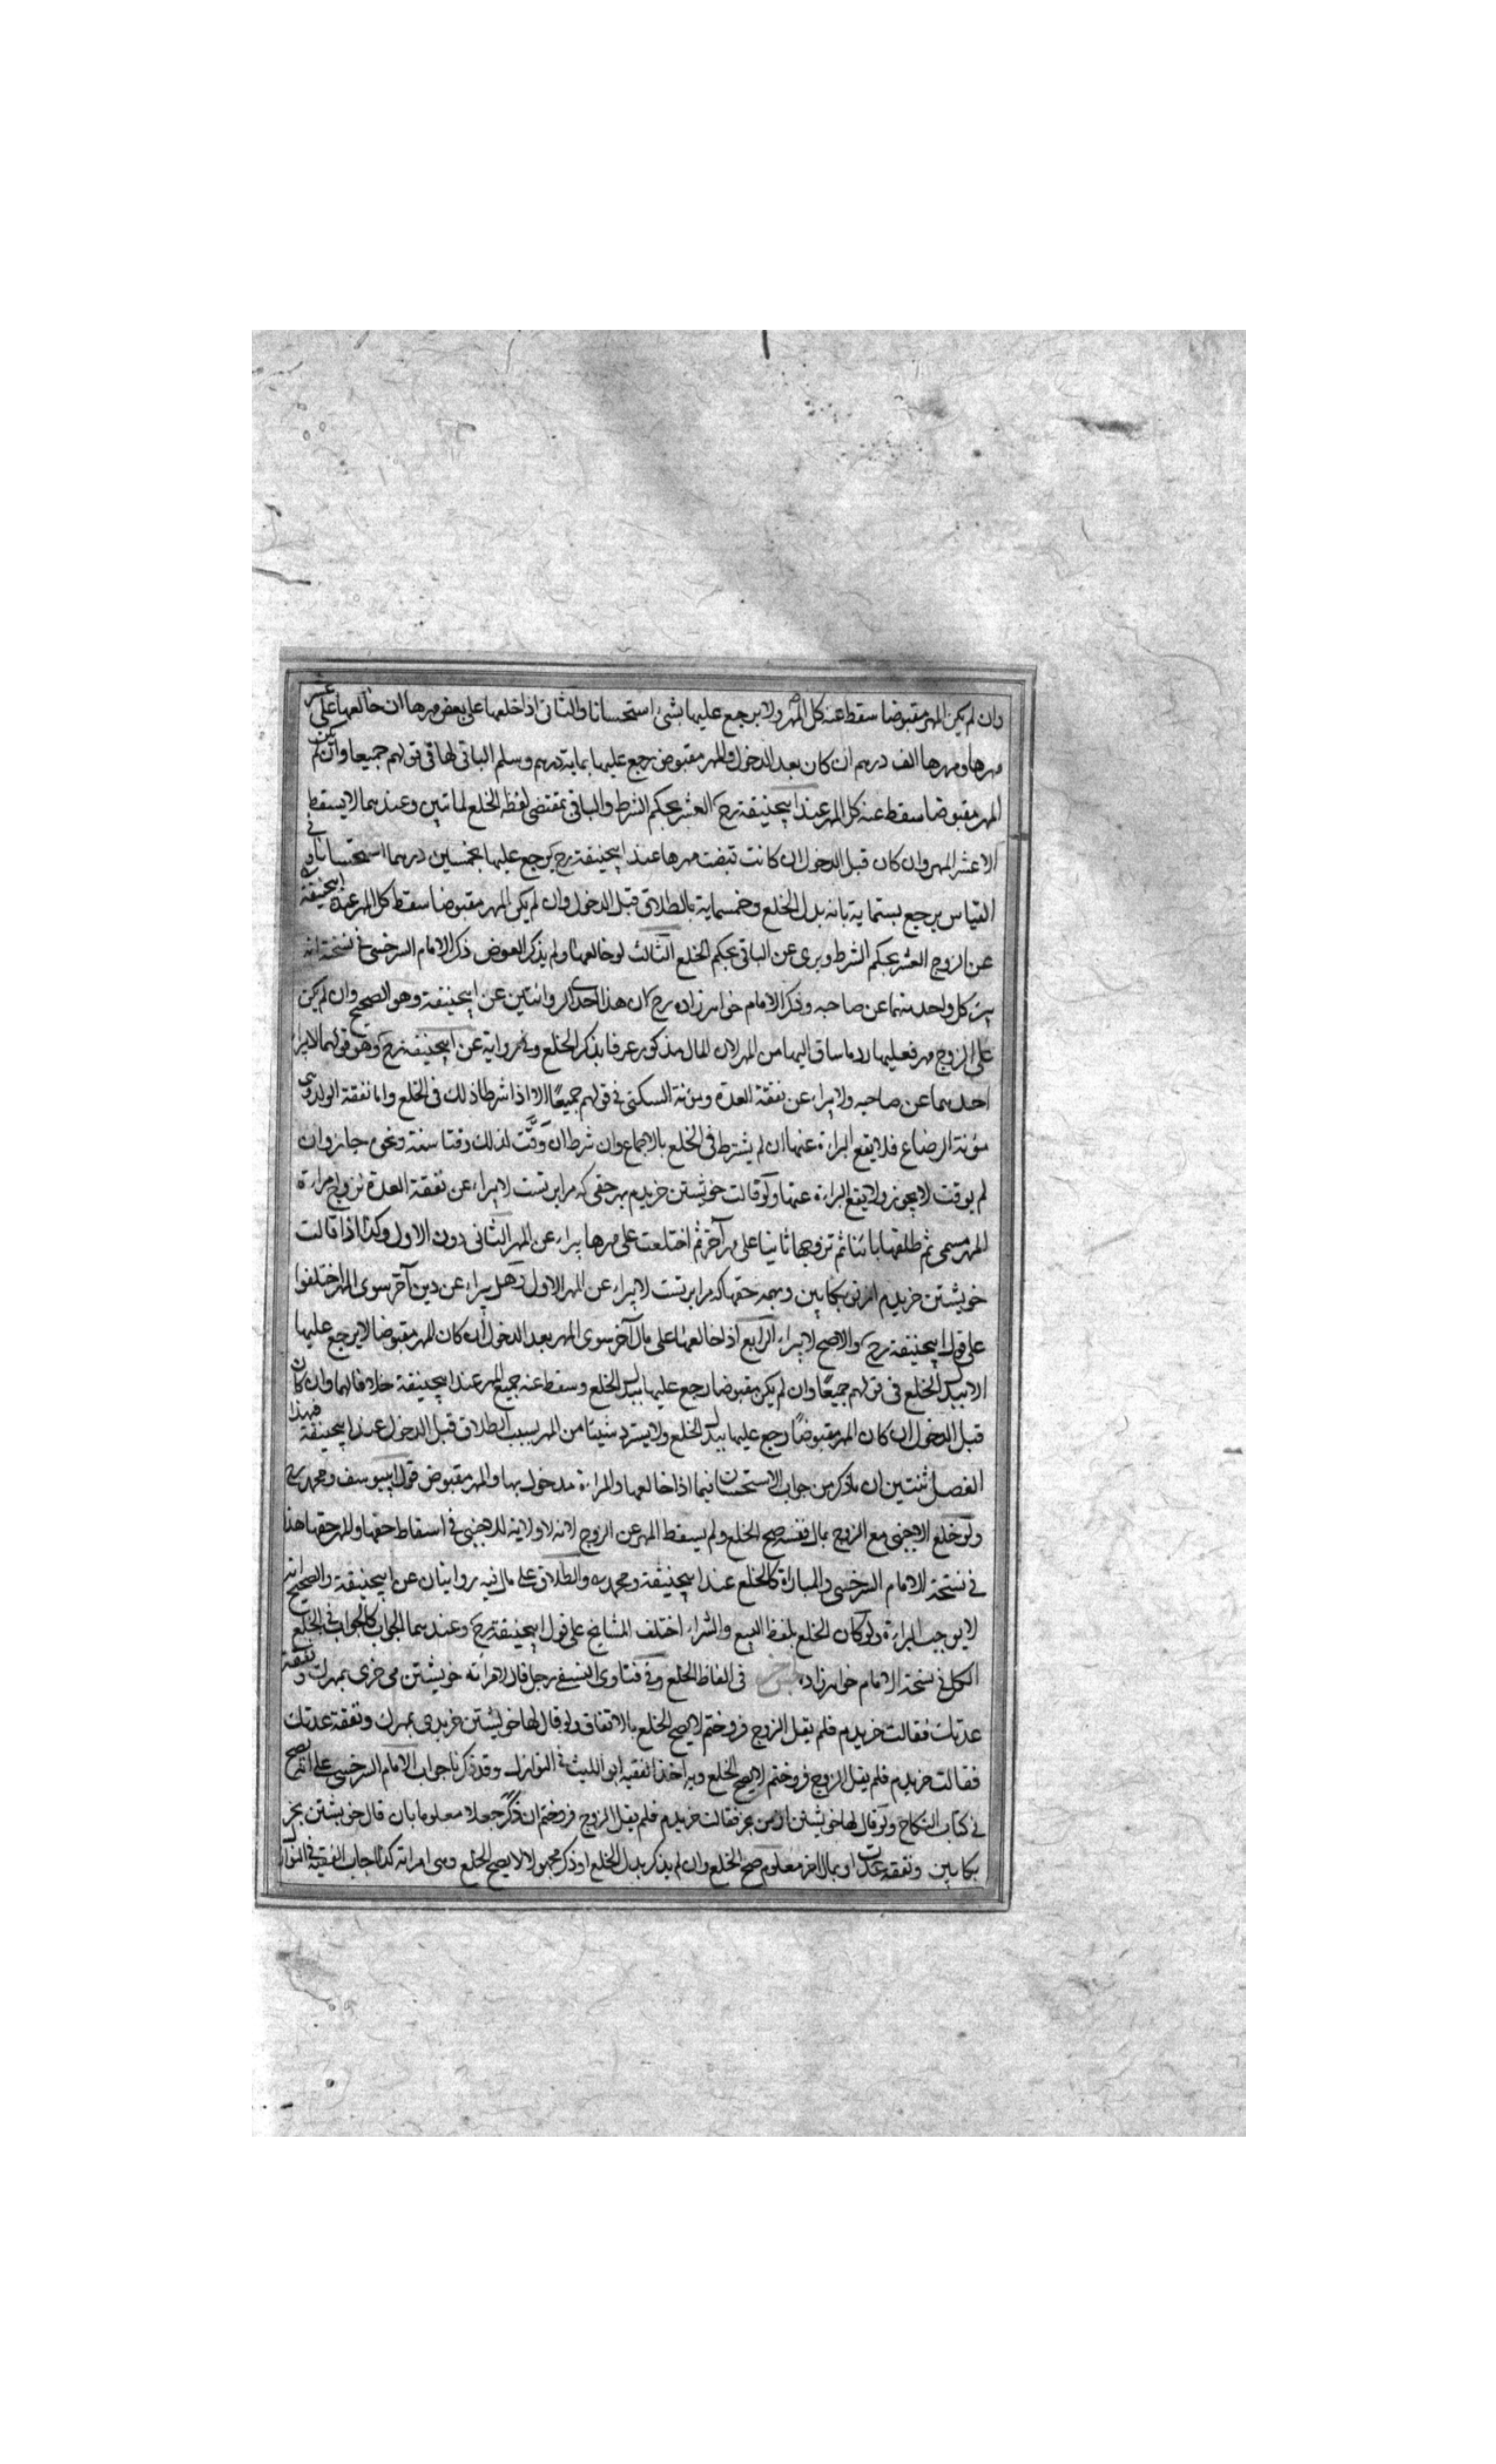 وان لم يكن المهر مقبوضا سقط عنه كل المهر ولا يرجع عليها بشئ استحسانا والثانى اذا خلعها على بعض مهرها ان خالعها على عشر
مهرها ومهرها الف درهم ان كان بعد الدخول والمهر مقبوض رجع عليها بماية درهم وسلم الباقى لها فى قولهم جميعا وان لم يكن
المهر مقبوضا سقط عنه كل المهر عند ابيحنيفة رح العشر بحكم الشرط والباقى بمقتضى لفظه الخلع لما تبين وعندهما لا يسقط
الا عشر المهر وان كان قبل الدخول ان كانت قبضت مهرها عند ابيحنيفة رح يرجع عليها بخمسين درهما استحسانا وفى
القياس يرجع بستماية باية بدل الخلع وخمسماية بالطلاق قبل الدخول وان لم يكن المهر مقبوضا سقط كل المهر عند ابيحنيفة
عن الزوج العشر بحكم الشرط وبرى عن الباقى بحكم الخلع الثالث لو خالعها ولم يذكر العوض ذكر الامام السرخسى فى نسخته انه
يبرئ كل واحد منهما عن صاحبه وذكر الامام خواهرزاده رح ان هذا احدى الروايتين عن ابيحنيفة وهو الصحيح وان لم يكن
على الزوج مهر فعليها رد ما ساق اليها من المهر لان المال مذكور عرفا بذكر الخلع وفى رواية عن ابيحنيفة رح وهو قولهما لا يبراء
احدهما عن صاحبه ولا يبراء عن نفقة العدة ومؤنة السكنى فى قولهم جميعًا الا اذا شرطا ذلك فى الخلع واما نفقة الولد وهى
مؤنة الرضاع فلا يقع البراءة عنها ان لم يشترط فى الخلع بالاجماع وان شرط ان وقّت لذلك وقتا سنة ونحوه جاز وان
لم يوقت لا يجوز ولا يقع البراءة عنها ولو قالت خويشتن خريدم بهر حقى كه مرا بر تست لا يبراء عن نفقة العدة تزوج امراءة
المهر مسمى ثم طلقها بائنا ثم تزوجها ثانيا على مهر آخر ثم اختلعت على مهرها يبراء عن المهر الثانى دون الاول وكذا اذا قالت
خويشتن خريدم از تو بكابين وبهمه حقها كه مرا بر تست لا يبراء عن المهر الاول وهل يبراء عن دين آخر سوى المهر اختلفوا
على قول ابيحنيفة رح والاصح لا يبراء الرابع اذا خالعها على مال آخر سوى المهر بعد الدخول ان كان المهر مقبوضا لا يرجع عليها
الا ببدل الخلع فى قولهم جميعًا وان لم يكن مقبوضا رجع عليها ببدل الخلع وسقط عنه جميع المهر عند ابيحنيفة خلافا لهما وان كان
قبل الدخول ان كان المهر مقبوضًا رجع عليها ببدل الخلع ولا يسترد شيئا من المهر بسبب الطلاق قبل الدخول عند ابيحنيفة فهذا
الفصل ان ما ذكر من جواب الاستحسان فيما اذا خالعها والمراءة مدخول بها والمهر مقبوض قول ابيوسف ومحمد رح
ولو خلع الاجنبى مع الزوج بمال نفسه صح الخلع ولم يسقط المهر عن الزوج لانه لا ولاية للاجنبى فى اسقاط حقها والمهر حقها هذا
فى نسخة الامام السرخسى والمباراة كالخلع عند ابيحنيفة ومحمد رح والطلاق على مال فيه روايتان عن ابيحنيفة والصحيح انه
لا يوجب البراءة ولو كان الخلع بلفظ البيع والشراء اختلف المشايخ على قول ابيحنيفة رح وعندهما الجواب كالجواب فى الخلع
الكل فى نسخة الامام خواهرزاده جنس آخر فى الفاظ الخلع وفى فتاوى النسفى رجل قال لامراته خويشتن مى خرى بمهرت ونفقة
عدتك فقالت خريدم فلم يقل الزوج فروختم لا يصح الخلع بالاتفاق ولو قال لها خويشتن خريدى بمهرك ونفقة عدتك
فقالت خريدم فلم يقل الزوج فروختم لا يصح الخلع وبه اخذ الفقيه ابو الليث فى النوازل وقد ذكرنا جواب الامام السرخسى على انه يصح
فى كتاب النكاح ولو قال لها خويشتن از من بخر فقالت خريدم فلم يقل الزوج فروختم ان ذكر جعلا معلوما بان قال خويشتن بخر
بكابين ونفقه عدت او بمال اخر معلوم صح الخلع وان لم يذكر بدل الخلع او ذكر مجهولا لا يصح الخلع وهى امراته كذا اجاب الفقيه فى النوازل